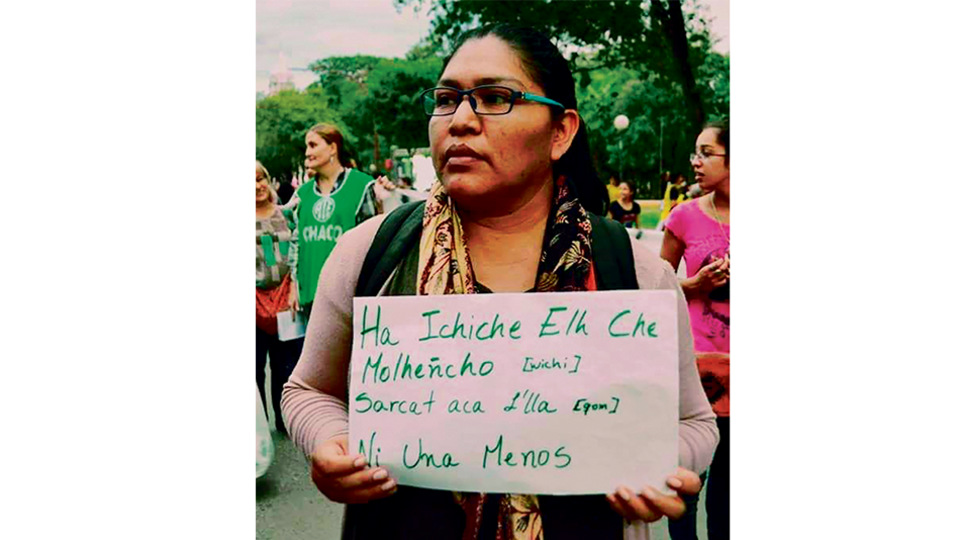 CHACO
Ha Ichiche Elh Che
Molheñcho [wichi]
Sarcat aca L'lla [qom]
Ni Una Menos